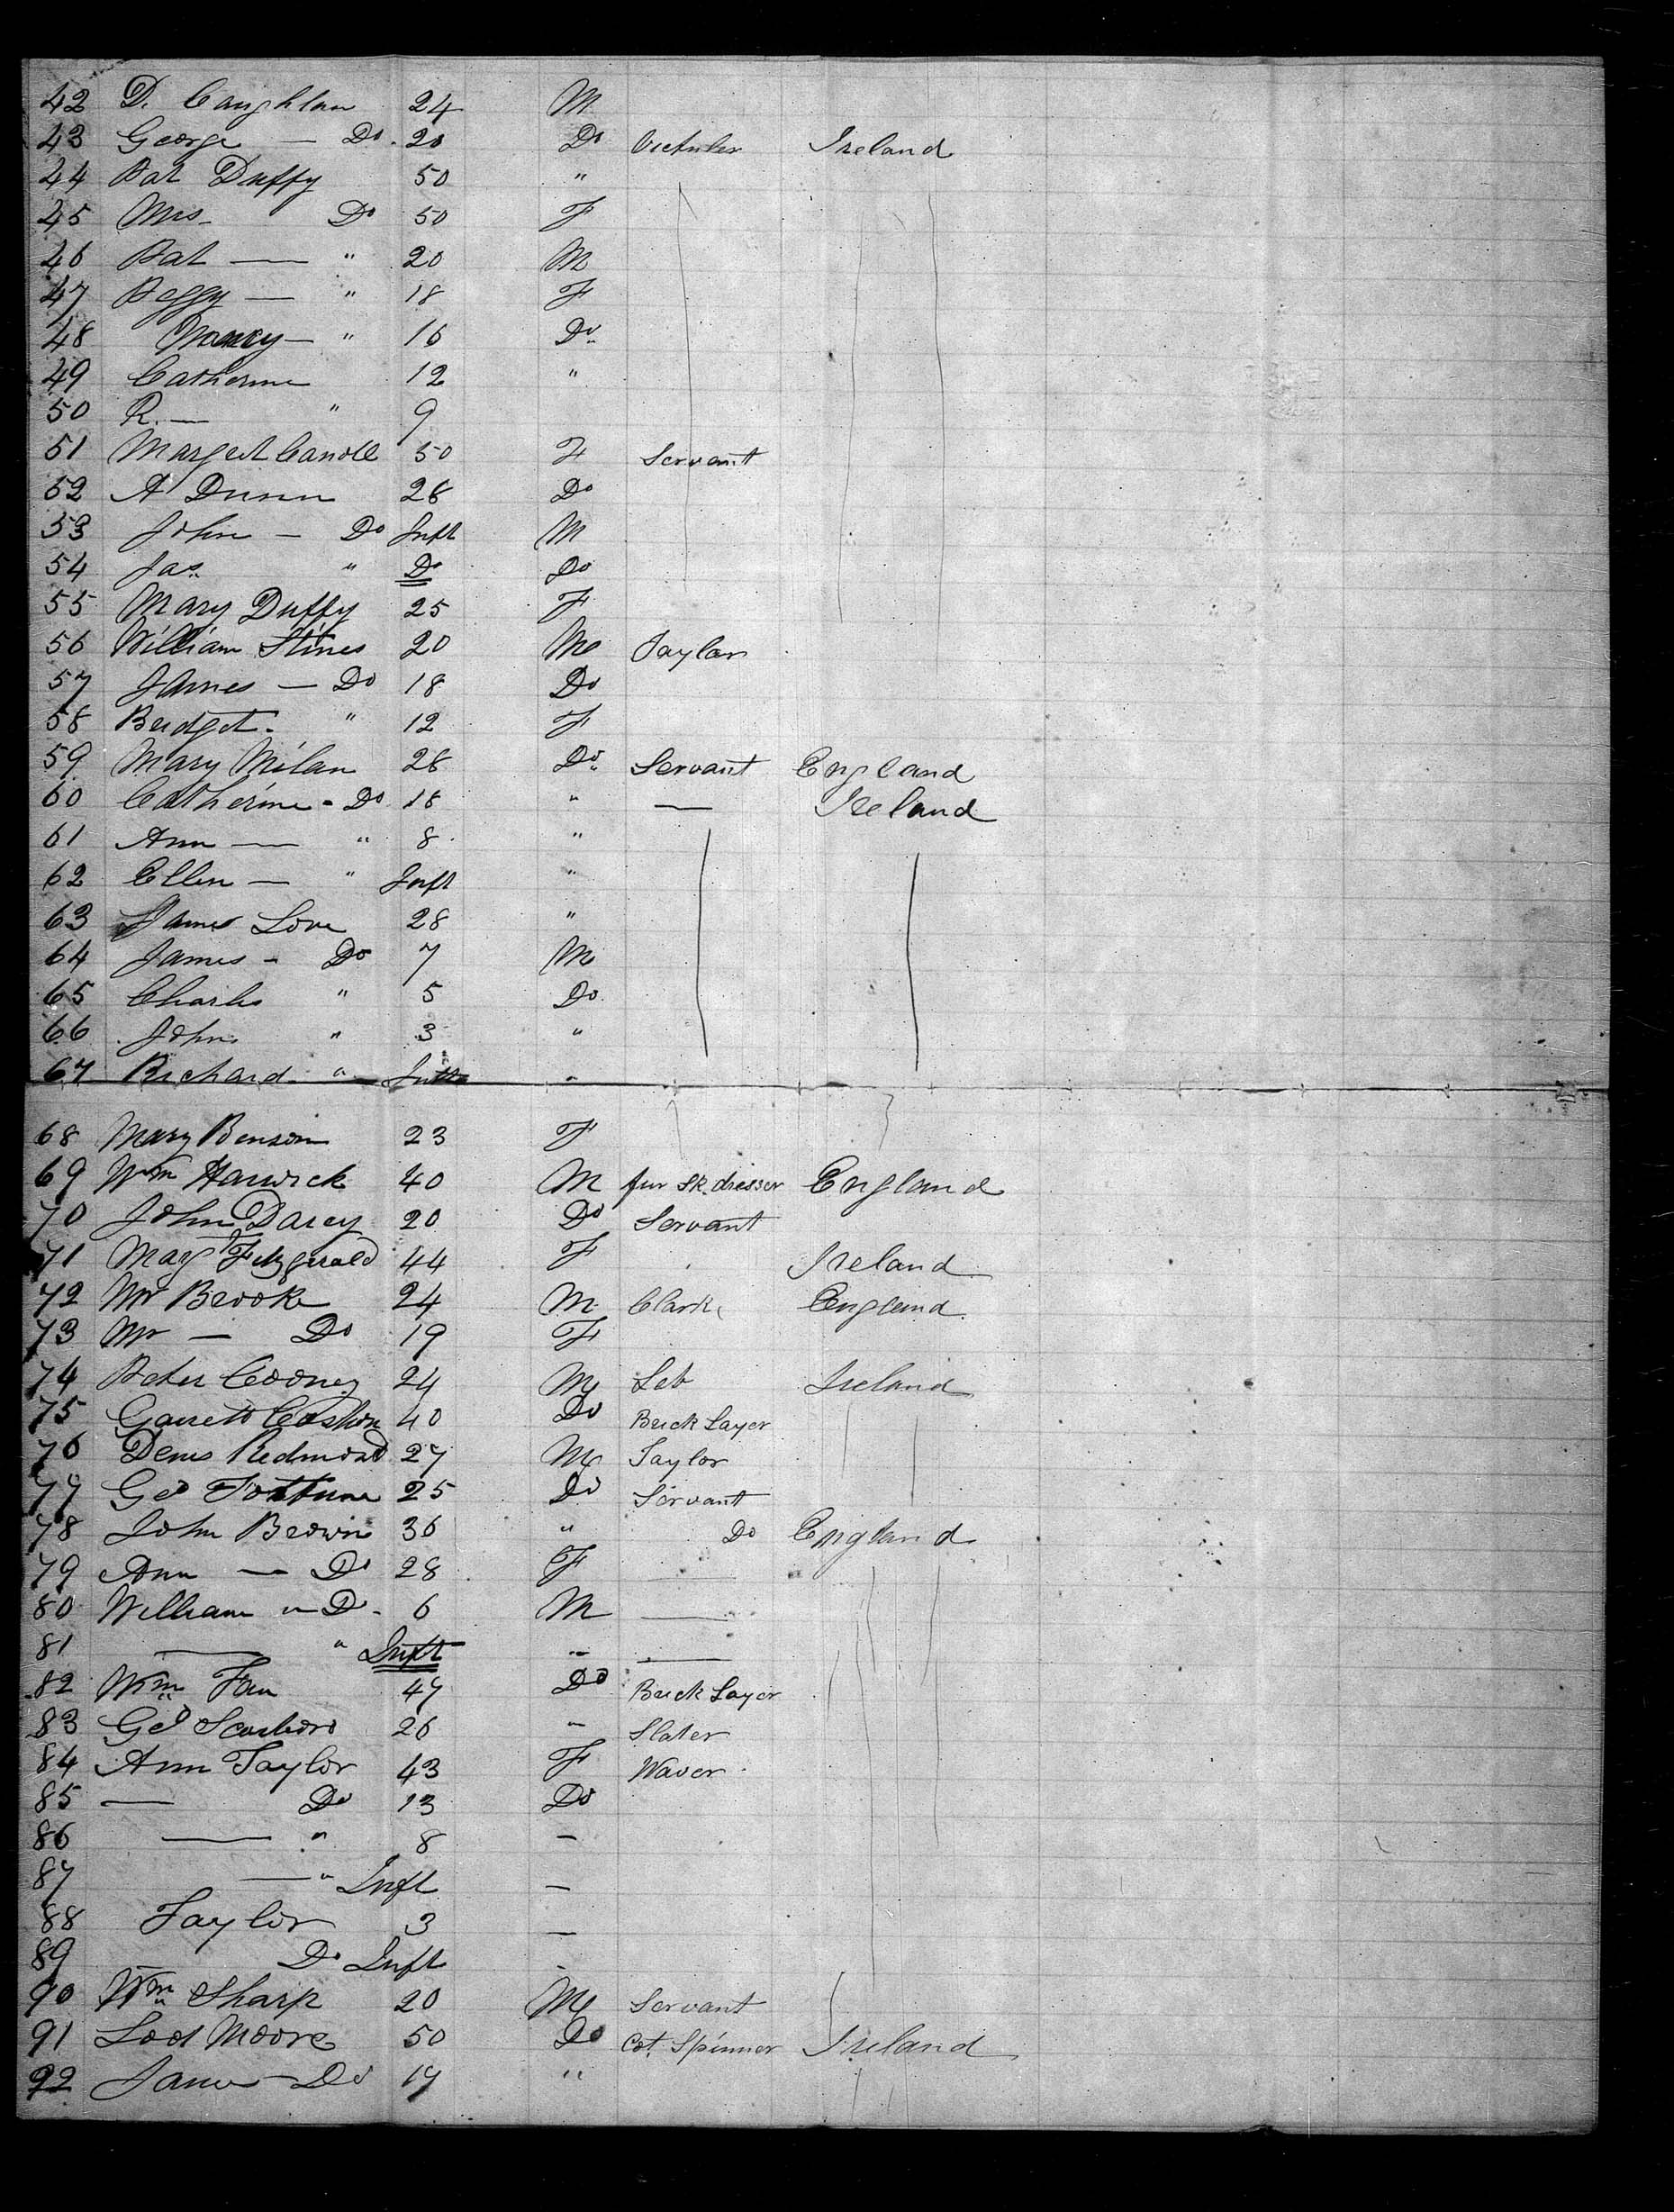 42 D. Caughlan 24 M
43 George — Do. 20 Do Victuler Ireland
44 Pat Duffy 50 "
45 Mrs Do 50 F
46 Pat — " 20 M
47 Peggy — " 18 F
48 Nancy — " 16 Do
49 Catherine 12 "
50 R. — " 9
51 Marget 50 F Servant
52 A Dunn 28 Do
53 John — Do Inft M
54 Jas " Do Do
55 Mary Duffy 25 F
56 William Stines 20 M Taylor
57 James — Do 18 Do
58 Bridget " 12 F
59 Mary Milan 28 Do Servant England
60 Catherine - Do 18 " — Ireland
61 Ann — " 8 "
62 Ellen — " Inft "
63 James Love 28 "
64 James - Do 7 M
65 Charles " 5 Do
66 John " 3 "
67 Richard " Inft "
68 Mary Benson 23 F
69 Wm Harwick 40 M fur Sk. dresser England
70 John Darcy 20 Do Servant
71 Mary Fitzgerald 44 F Ireland
72 Mr Brooke 24 M Clark England
73 Mr — Do 19 F
74 Peter Cooney 24 M Lab Ireland
75 Garrett 40 Do Brick Layer
76 Denis Redmond 27 M Taylor
77 Geo Fortune 25 Do Servant
78 John Brown 36 " Do England
79 Ann — Do 28 F —
80 William " Do - 6 M —
81 — " Inft " —
82 Wm 47 Do Brick Layer
83 Geo Scarboro 26 " Slater
84 Ann Taylor 43 F Waver
85 — Do 13 Do
86 — " 8 —
87 — " Inft —
88 Taylor 3 —
89 Do Inft -
90 Wm Sharp 20 M Servant
91 Lod Moore 50 Do Cot. Spinner Ireland
92 James — Do 17 "